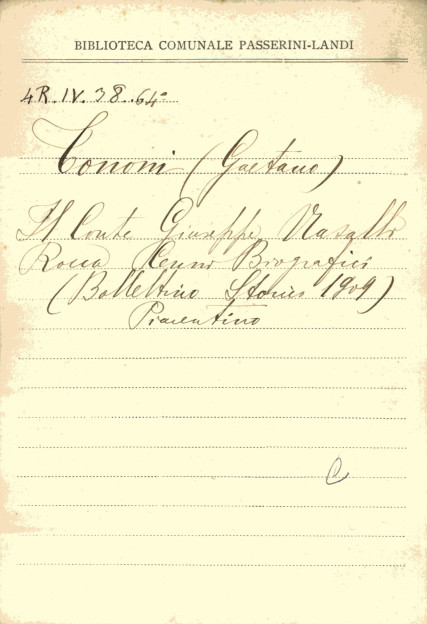 BIBLIOTECA COMUNALE PASSERINI-LANDI
4R.IV.38.64º
Tononi (Gaetano)
Il Conte Giuseppe Nasalli
Rocca Cenni Biografici
(Bollettino Storico 1909)
Piacentino
C